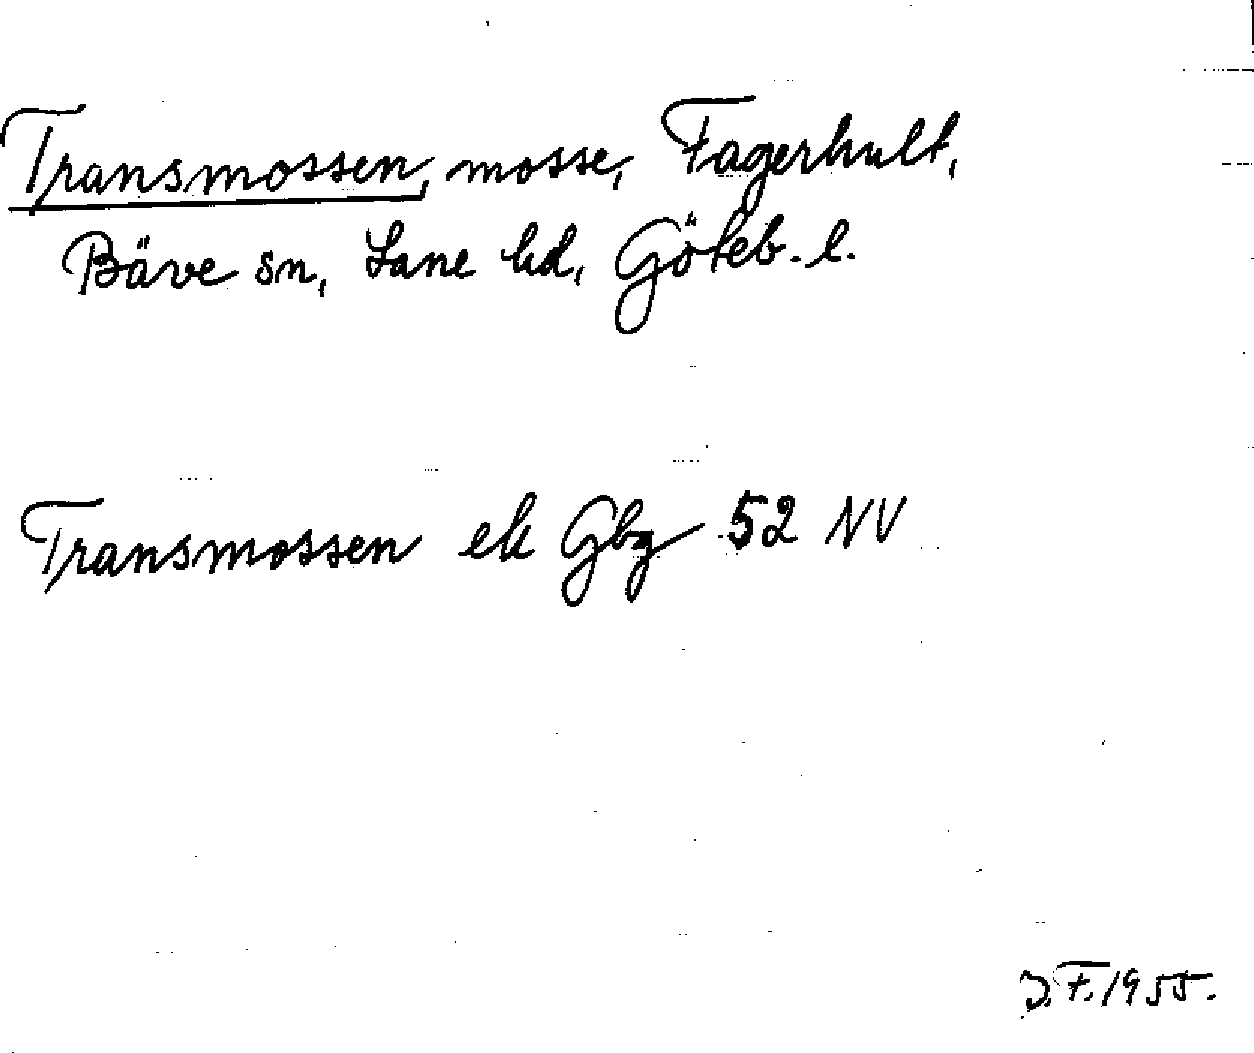 Transmossen, mosse, Fagerhult,
Bäve sn, Lane hd, Göteb. l.
Transmossen ek Gbg 52 NV
J.F. 1955.